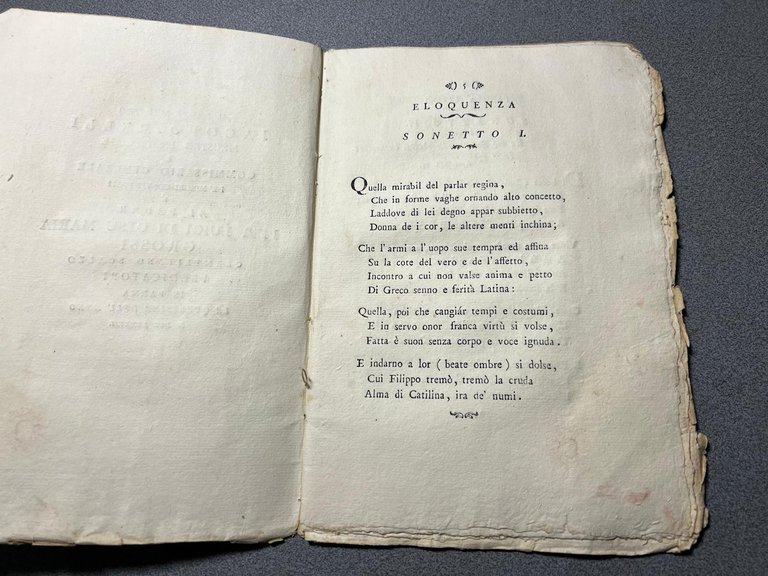 5
ELOQUENZA
SONETTO I.
Quella mirabil del parlar regina,
Che in forme vaghe ornando alto concetto,
Laddove di lei degno appar subbietto,
Donna de i cor, le altere menti inchina;
Che l'armi a l'uopo sue tempra ed affina
Su la cote del vero e de l'affetto,
Incontro a cui non valse anima e petto
Di Greco senno e ferità Latina:
Quella, poi che cangiár tempi e costumi,
E in servo onor franca virtù si volse,
Fatta è suon senza corpo e voce ignuda.
E indarno a lor (beate ombre) si dolse,
Cui Filippo tremò, tremò la cruda
Alma di Catilina, ira de' numi.